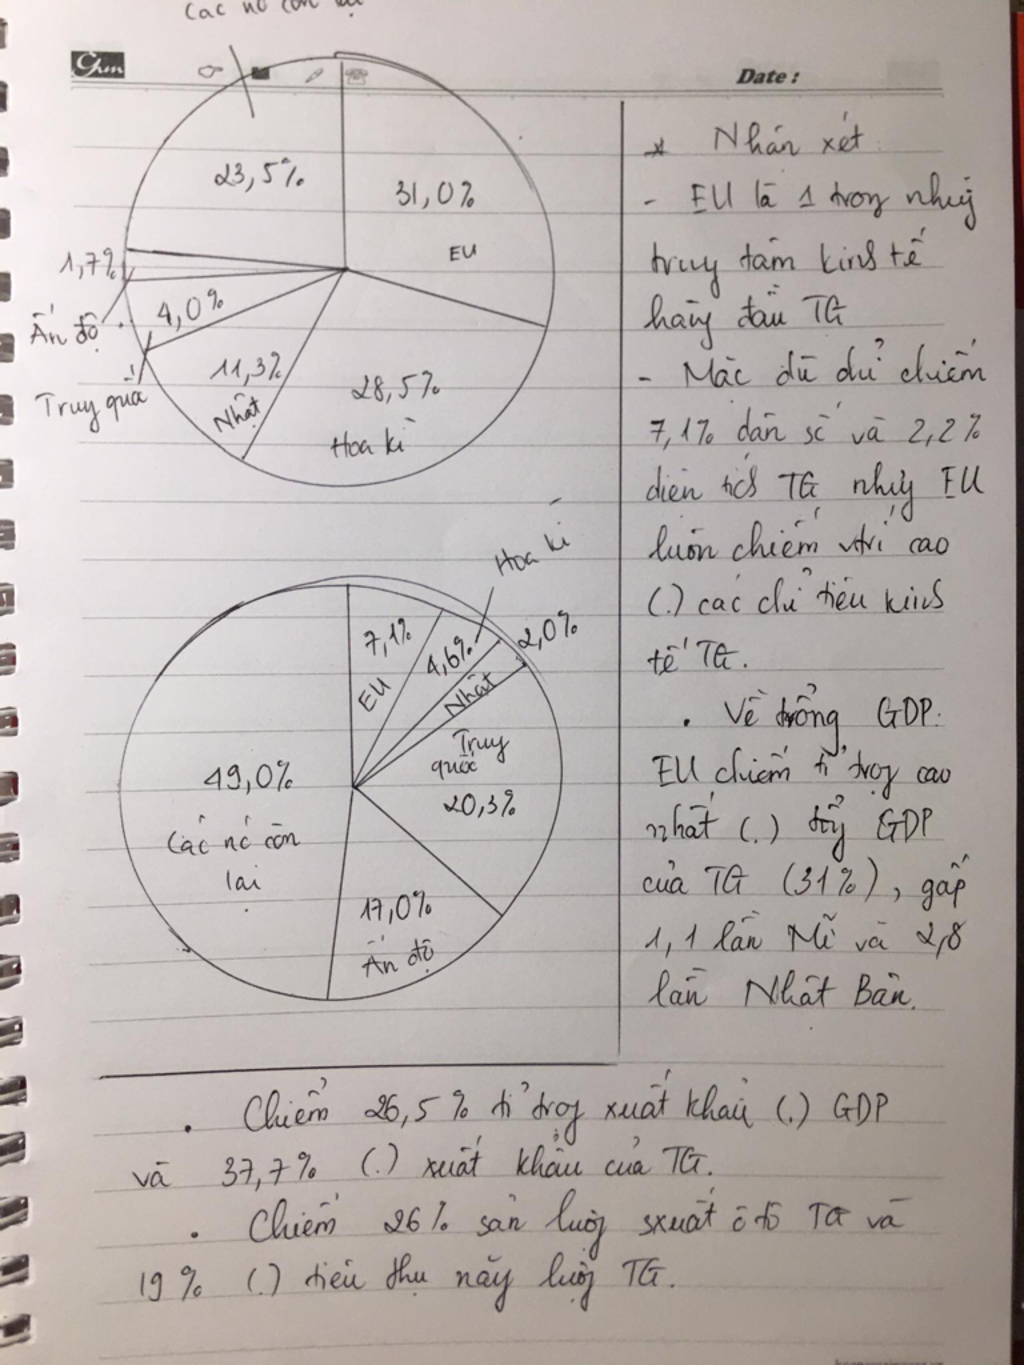 Các nc còn lại
Ghm
Date :
23,5%
31,0%
EU
1,7%
Ấn độ
4,0%
Truy quá
11,3%
Nhật
28,5%
Hoa kì
Hoa kì
7,1%
EU
4,6%
2,0%
Nhật
Truy
quốc
20,3%
49,0%
Các nc còn
lại
17,0%
Ấn độ
* Nhận xét
- EU là 1 trog nhữg
truy tâm kinh tế
hàg đầu TG
- Mặc dù chỉ chiếm
7,1% dân số và 2,2%
diện tích TG nhưg EU
luôn chiếm vtrí cao
(.) các chỉ tiêu kinh
tế TG.
. Về trổng GDP:
EU chiếm tỉ trọg cao
nhất (.) tổg GDP
của TG (31%), gấp
1,1 lần Mĩ và 2,8
lần Nhật Bản.
. Chiếm 26,5% tỉ trọg xuất khẩu (.) GDP
và 37,7% (.) xuất khẩu của TG.
. Chiếm 26% sản lượg sxuất ô tô TG và
19% (.) tiêu thụ năg lượg TG.